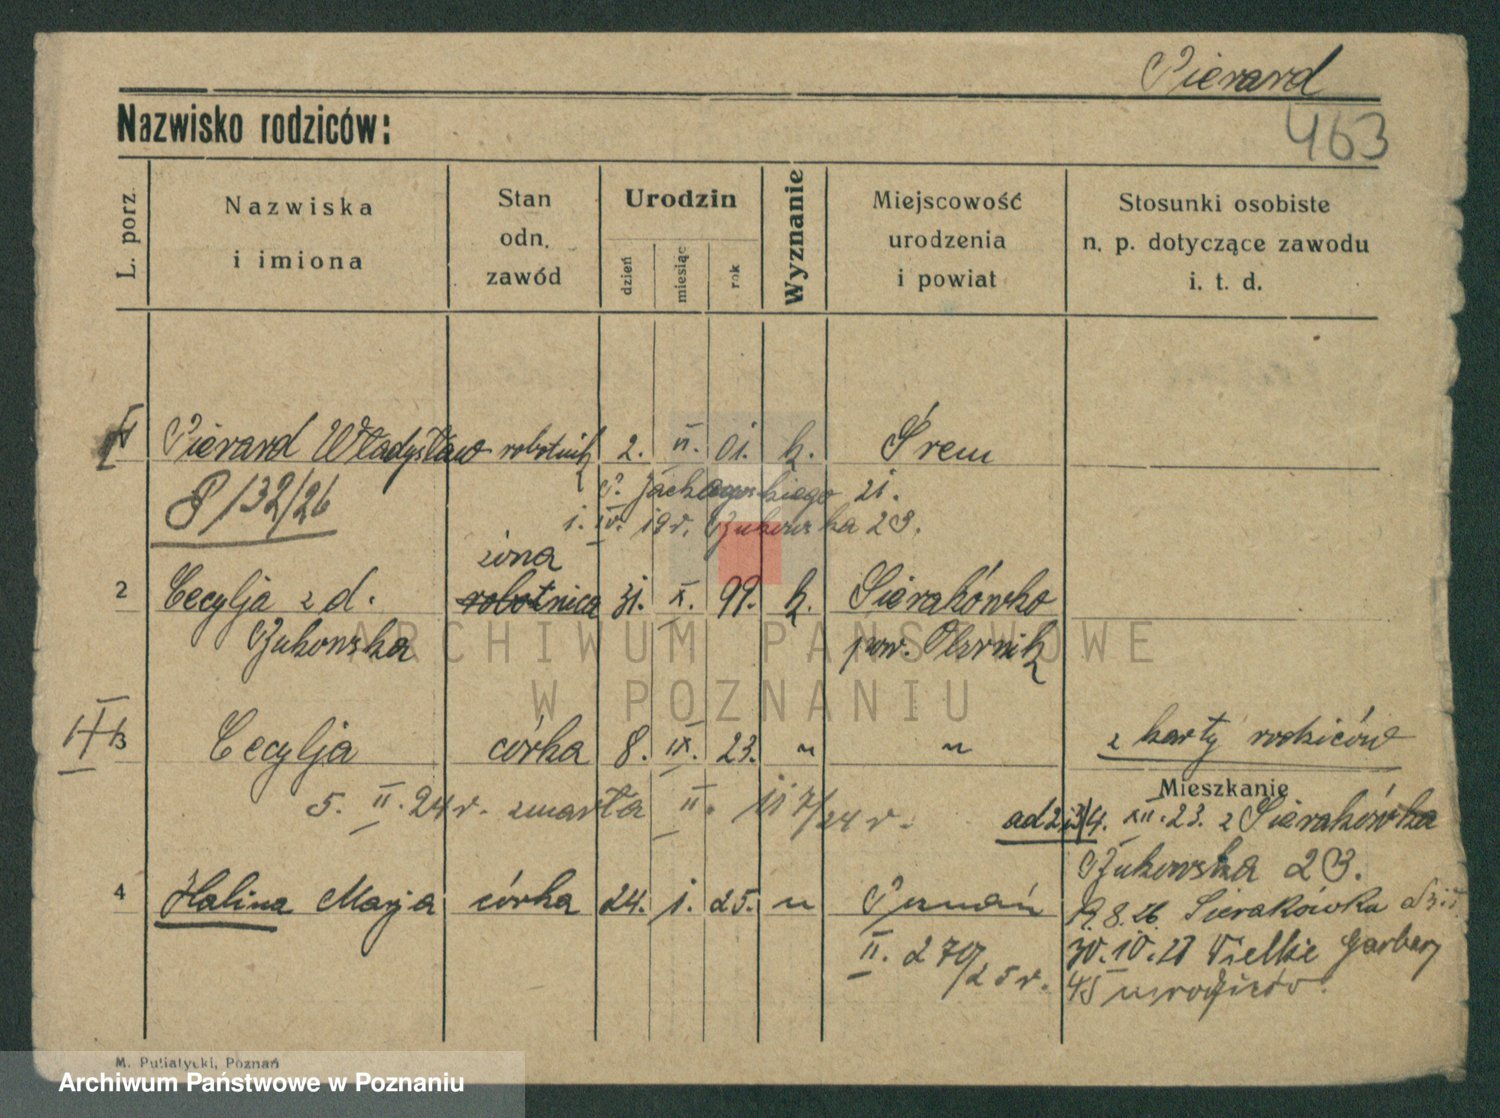 Pierard
Nazwisko rodziców:
463
L. porz.
Nazwiska
i imiona
Stan
odn.
zawód
Urodzin
dzień
miesiąc
rok
Wyznanie
Miejscowość
urodzenia
i powiat
Stosunki osobiste
n. p. dotyczące zawodu
i. t. d.
Pierard Władysław robotnik 2. VI. 01. k. Śrem
132/26
21.
1. IV. 19r. Bukowska 23.
żona
2 Cecylja z d. robotnica 31. X. 99. k. Sierakówko
Bukowska pow. Obornik
3 Cecylja córka 8. IX. 23. " " z karty rodziców
Mieszkanie
5. II. 24 r. zmarła II. 117/24 r.
4. XII. 23. z Sierakówka
Bukowska 23.
4 Halina Marja córka 24. 1. 25. " Poznań
8. 26. Sierakówka
II. 270/25 r.
30. 10. 27 Wielkie Garbary
45 u rodziców.
M. Putiatycki, Poznań
ARCHIWUM PAŃSTWOWE
W POZNANIU
Archiwum Państwowe w Poznaniu